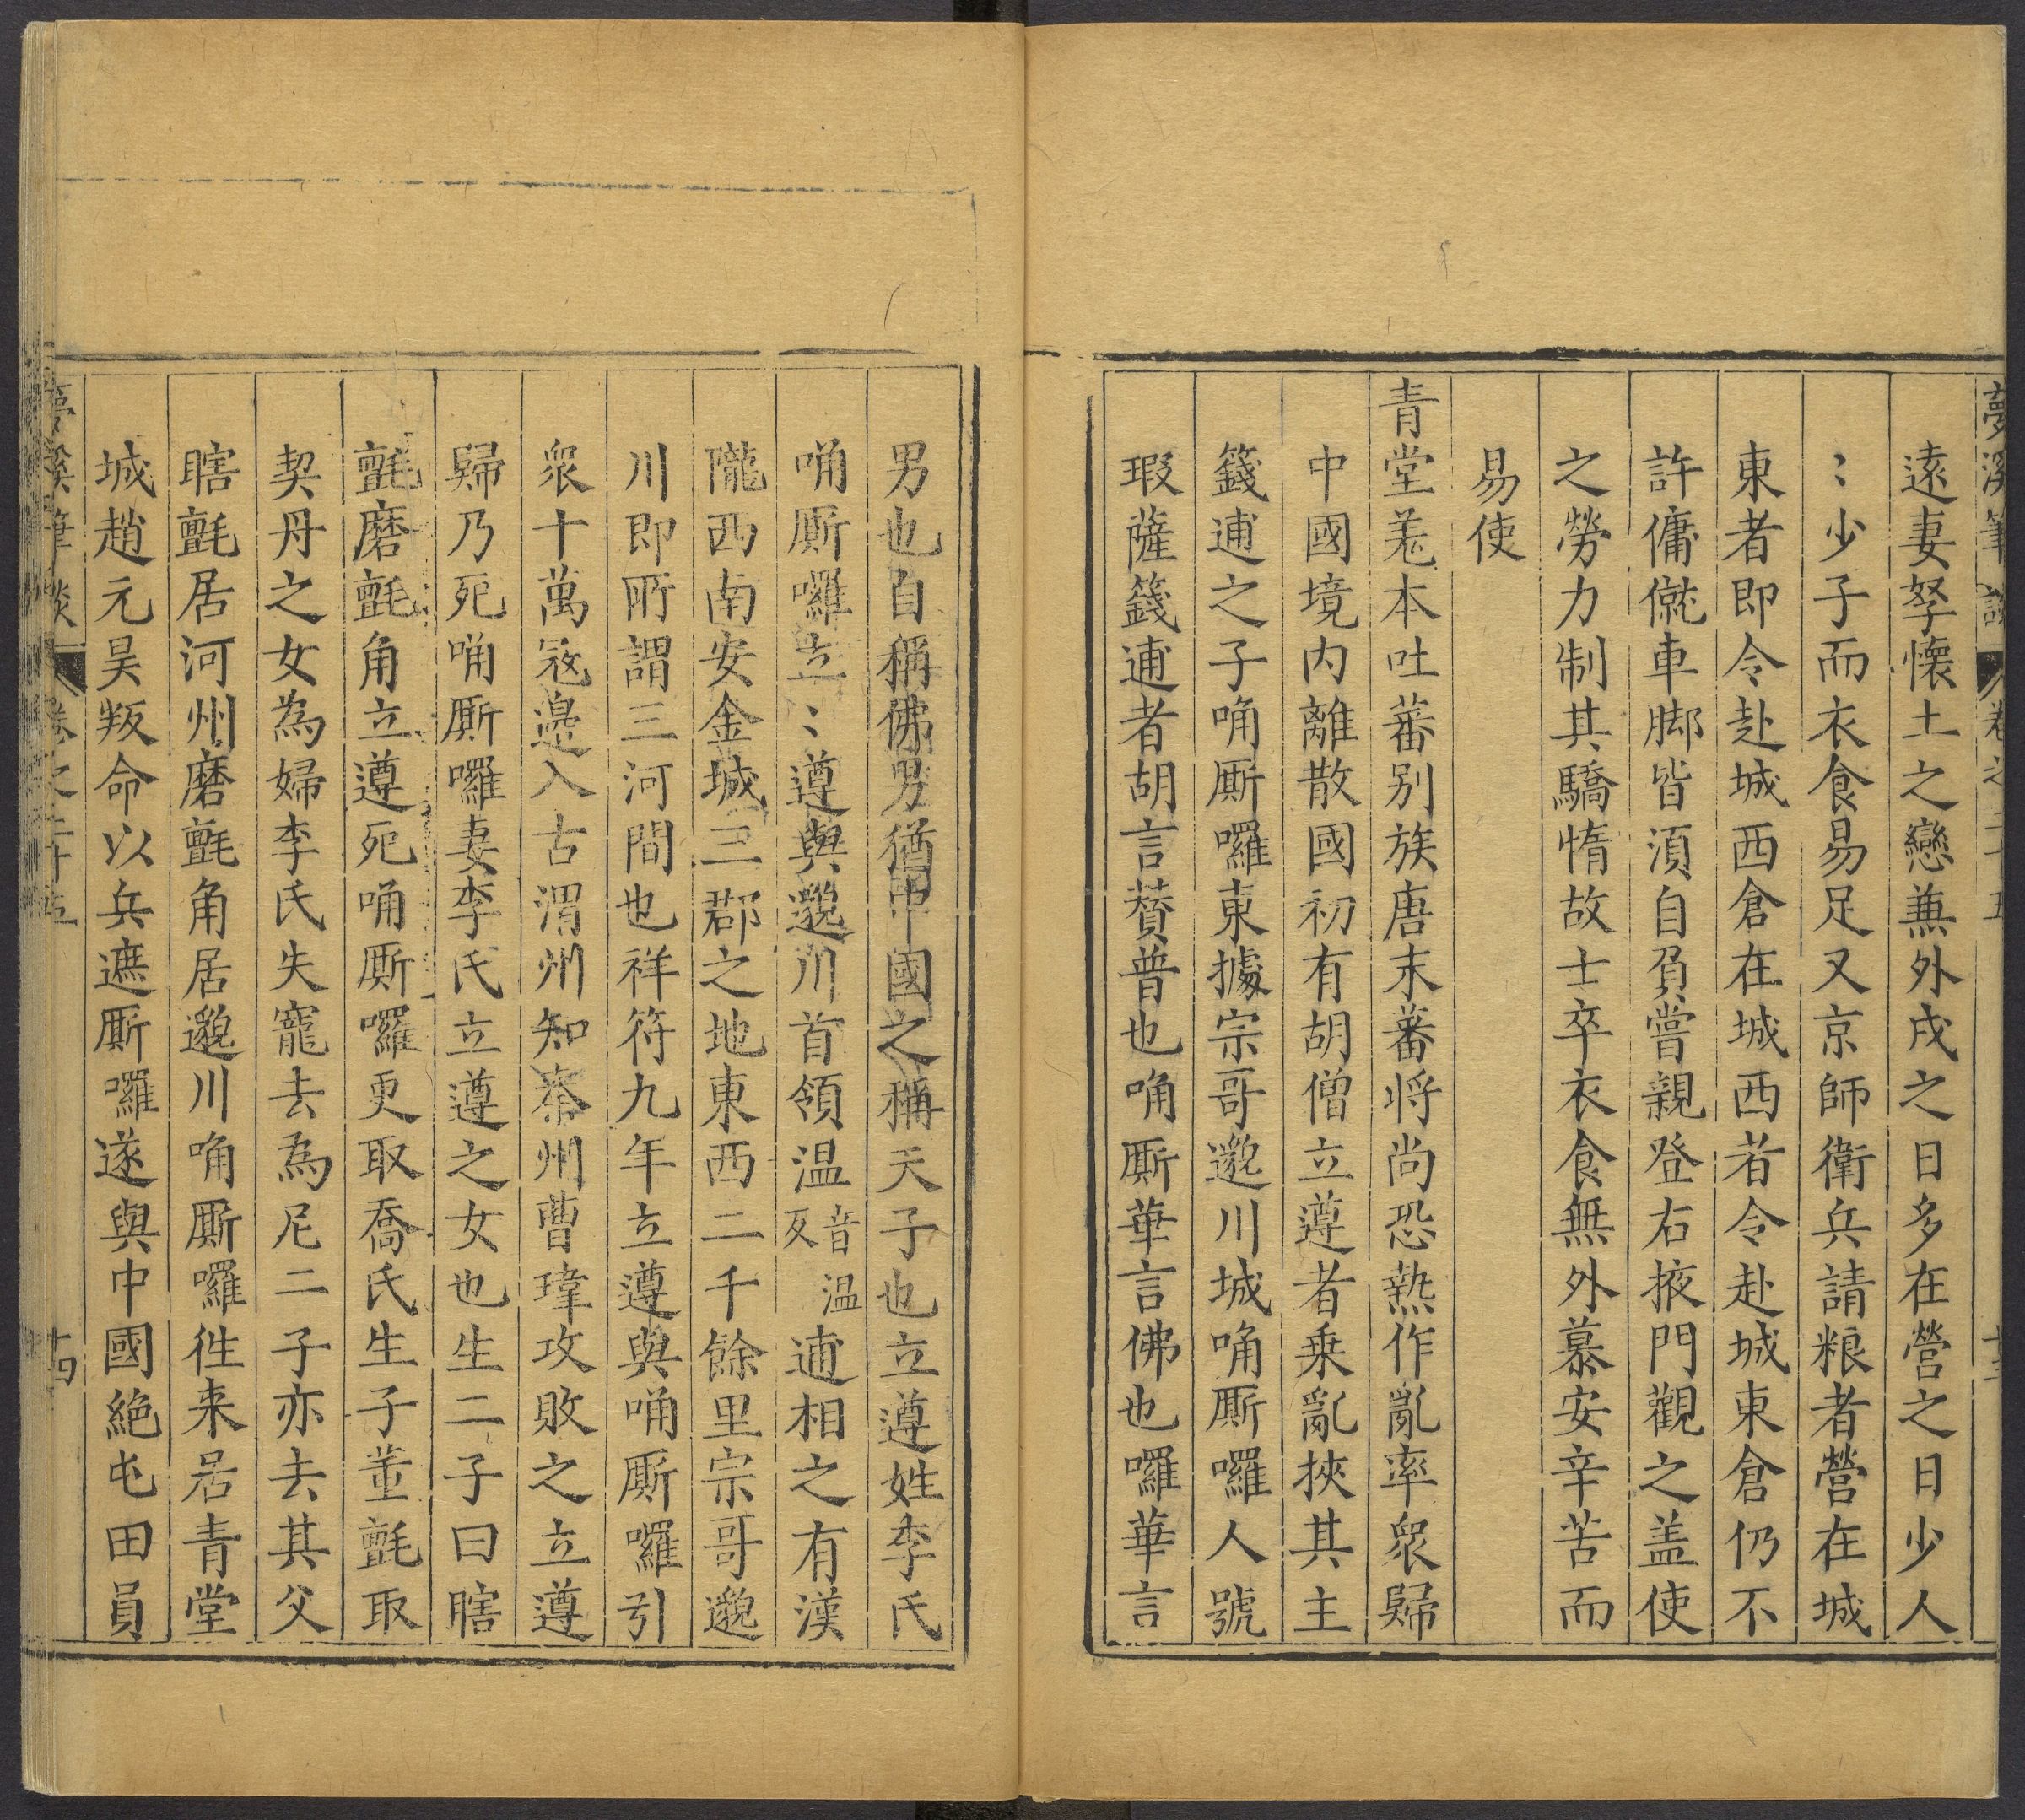 夢溪筆談 卷之二十五 十三
遠妻孥懷土之戀兼外戍之日多在營之日少人
〻少子而衣食易足又京師衛兵請粮者營在城
東者即令赴城西倉在城西者令赴城東倉仍不
許傭僦車脚皆湏自負嘗親登右掖門觀之盖使
之勞力制其驕惰故士卒衣食無外慕安辛苦而
易使
青堂羌本吐蕃别族唐末蕃将尚恐熱作亂率衆歸
中國境内離散國初有胡僧立遵者乗亂挾其主
籛逋之子唃厮囉東據宗哥邈川城唃厮囉人號
瑕薩籛逋者胡言賛普也唃厮華言佛也囉華言
男也自稱佛男猶中國之稱天子也立遵姓李氏
唃厮囉立〻遵與邈川首領温音温反逋相之有漢
隴西南安金城三郡之地東西二千餘里宗哥邈
川即所謂三河間也祥符九年立遵與唃厮囉引
衆十萬冦邉入古渭州知秦州曹瑋攻敗之立遵
歸乃死唃厮囉妻李氏立遵之女也生二子曰瞎
氊磨氊角立遵死唃厮囉更取喬氏生子董氊取
契丹之女為婦李氏失寵去為尼二子亦去其父
瞎氊居河州磨氊角居邈川唃厮囉徃来居青堂
城趙元昊叛命以兵遮厮囉遂與中國絶屯田員
夢溪筆談 卷之二十五 十四